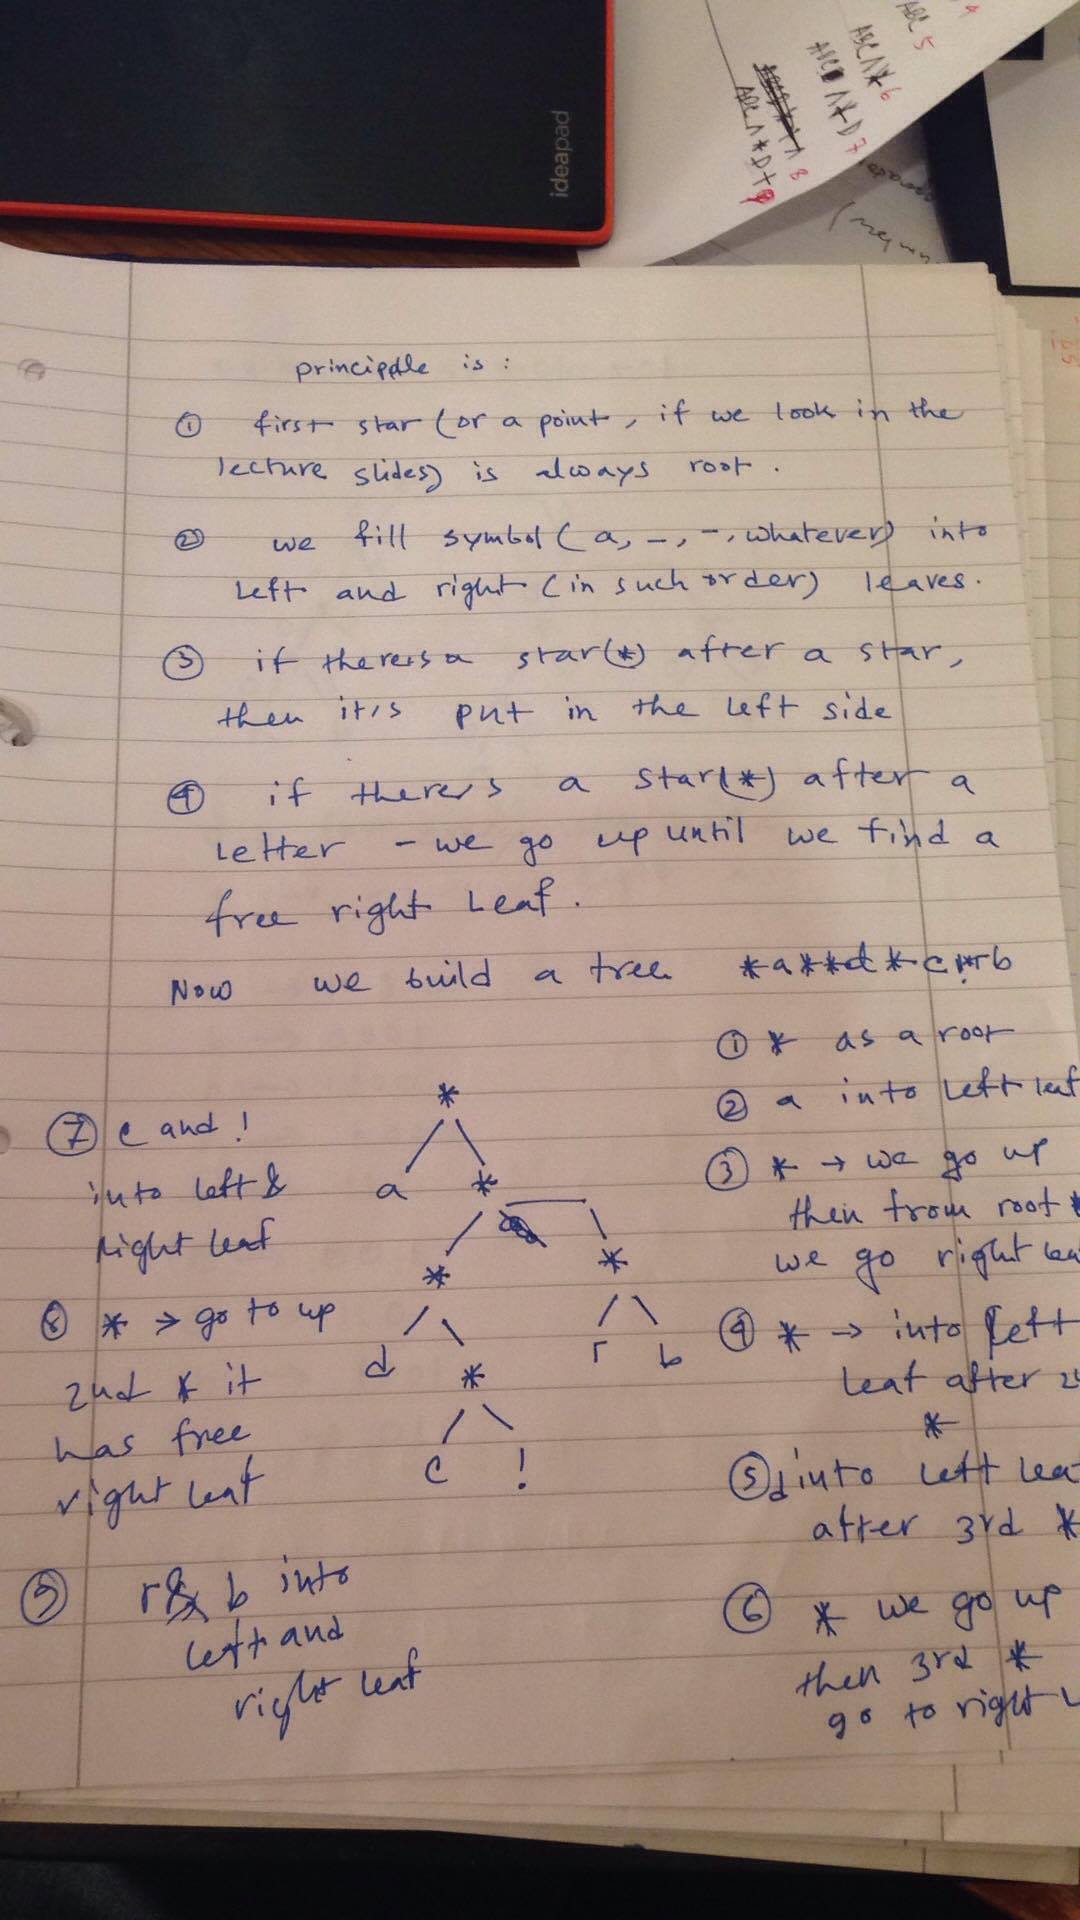 ideapad
ABC 5
ABC^* 6
ABC^*D 7
ABC^*D+
8
principle is :
① first star (or a point, if we look in the
lecture slides) is always root .
② we fill symbol ( a, -, -, whatever) into
left and right (in such order) leaves.
③ if there's a star(*) after a star,
then it's put in the left side
④ if there's a star(*) after a
letter - we go up until we find a
free right leaf .
Now we build a tree *a**d*c!*rb
① * as a root
② a into left leaf
③ * → we go up
then from root *
we go right
④ * → into left
leaf after
*
⑤ d into left
after 3rd *
⑥ * we go up
then 3rd *
go to right
*
a *
* *
d * r b
c !
⑦ c and !
into left &
right leaf
⑧ * → go to up
2nd * it
has free
right leaf
⑨ r & b into
left and
right leaf